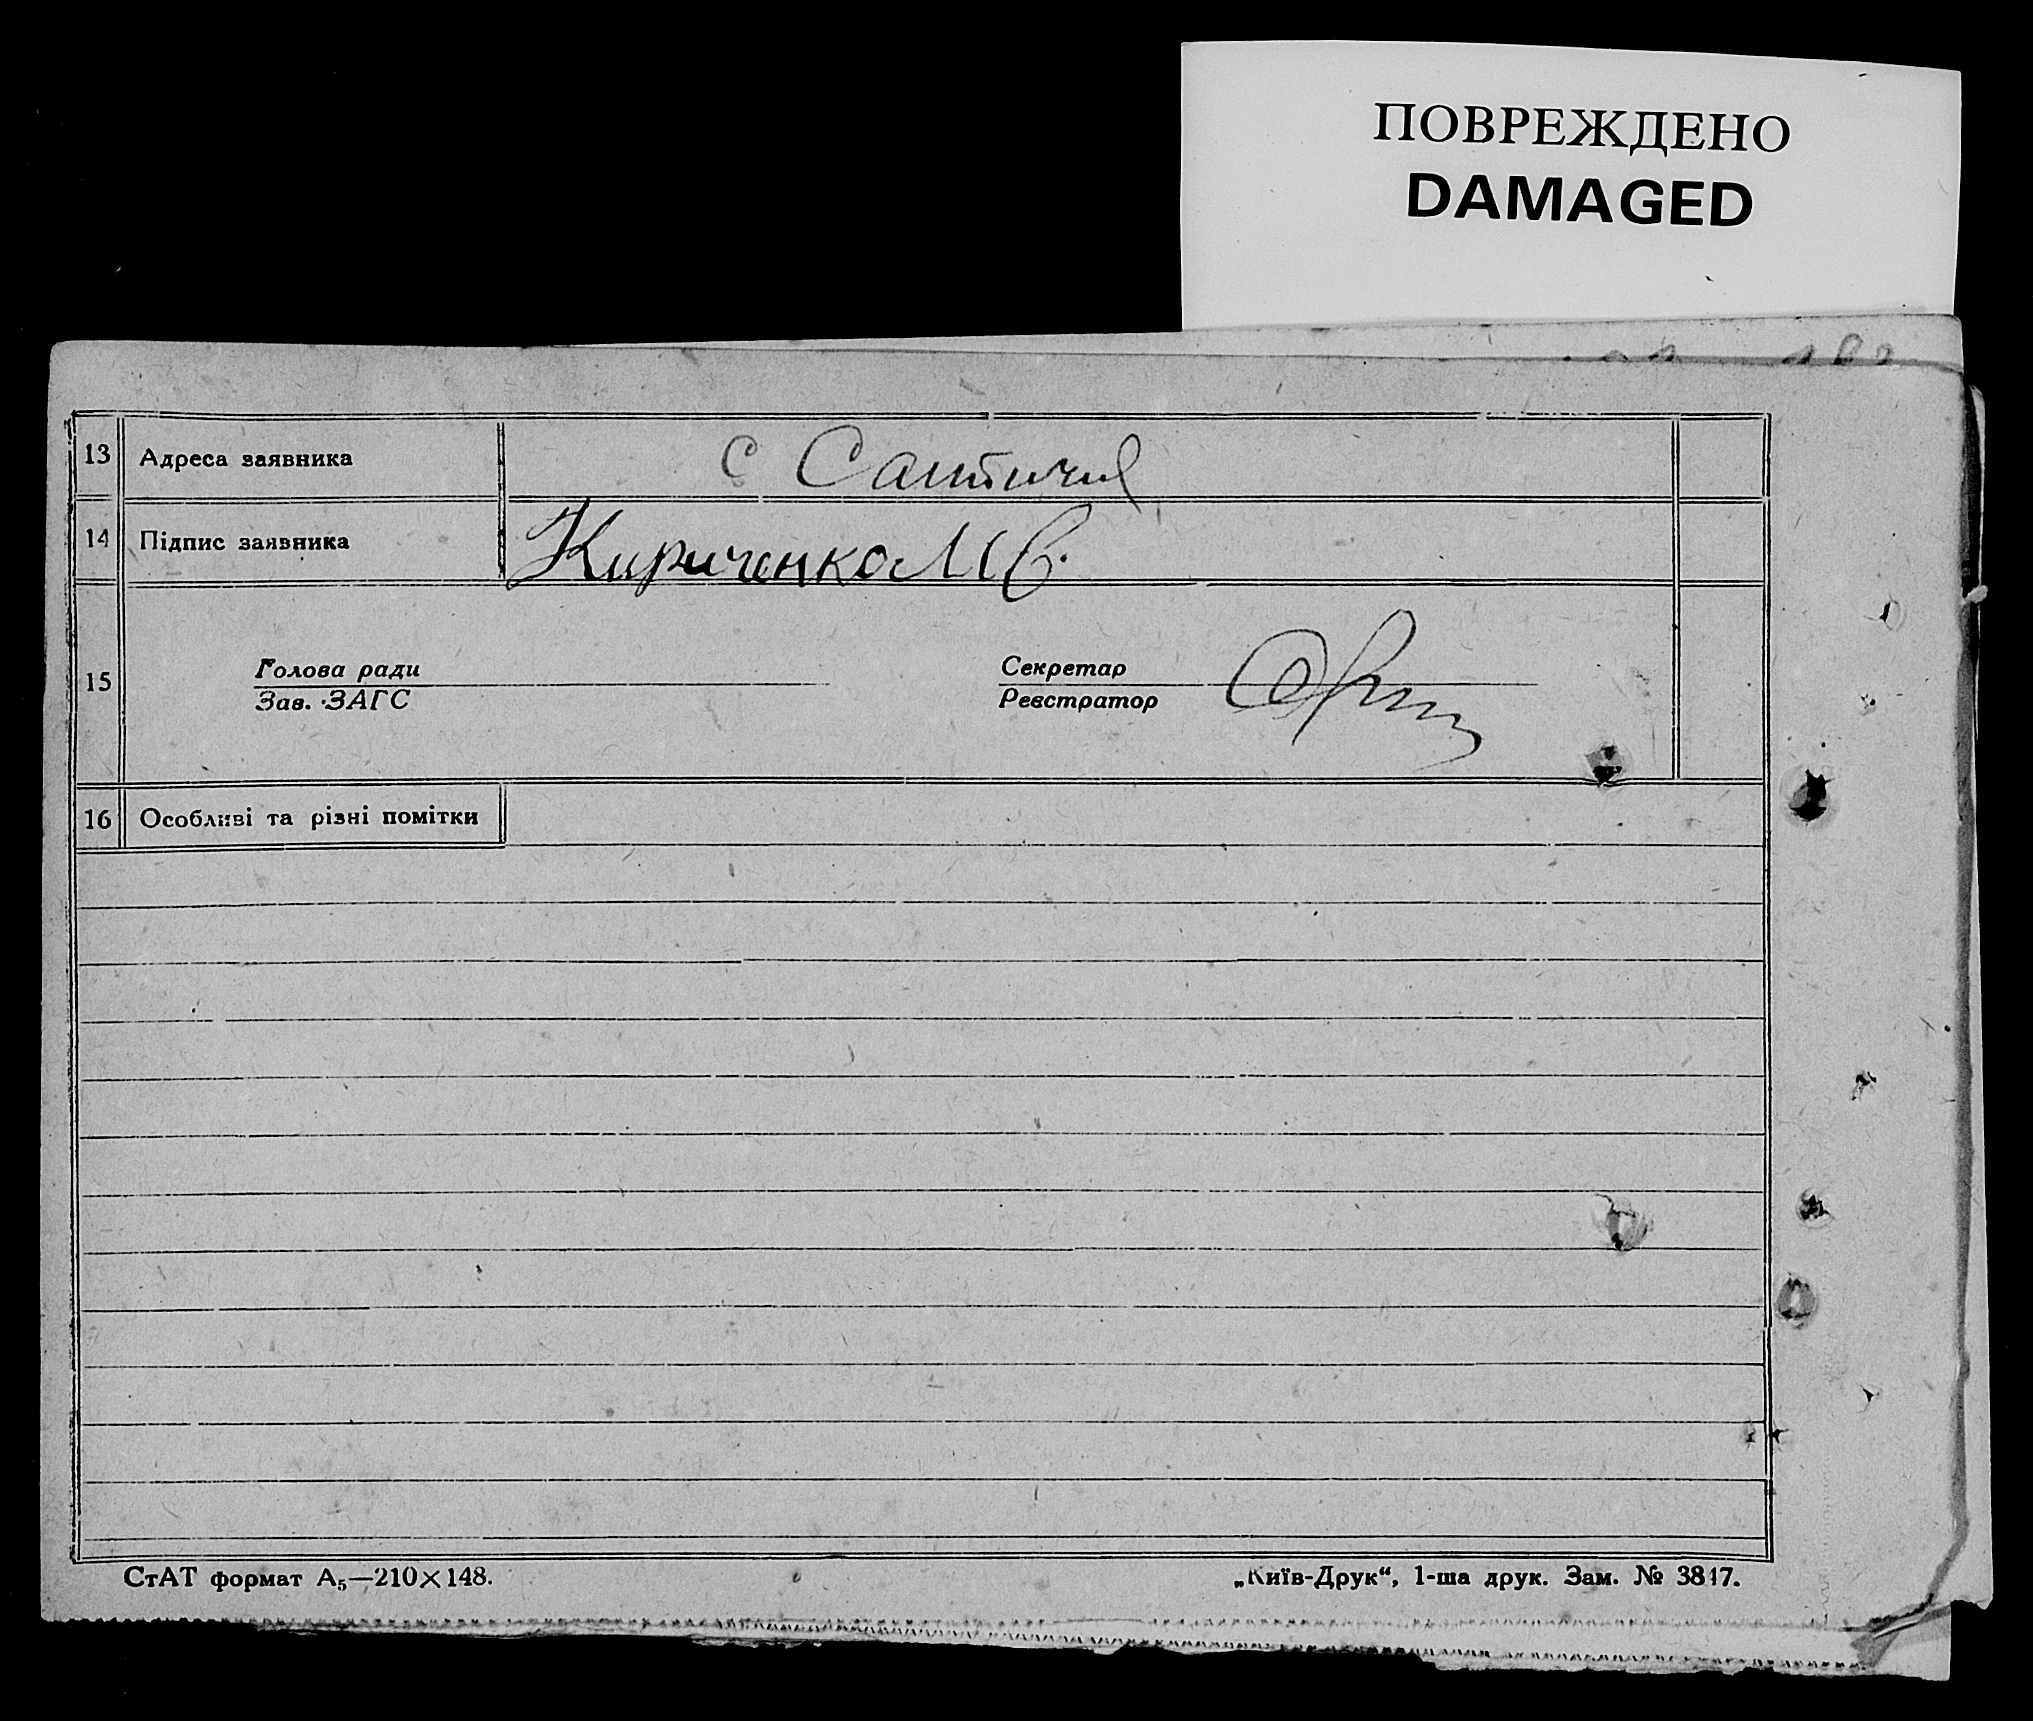 ПОВРЕЖДЕНО
DAMAGED
13 Адреса заявника с
14 Підпис заявника Кириченко М С.
Голова ради Секретар
15
Зав. ЗАГС Реєстратор
16 Особливі та різні помітки
СтАТ формат А₅—210×148. „Київ-Друк“, 1-ша друк. Зам. № 3817.